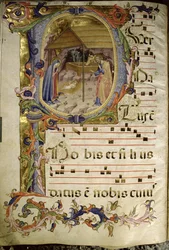 P Uer
Na
tus ē
No bis et fi li us
datus ē nobis cuiu